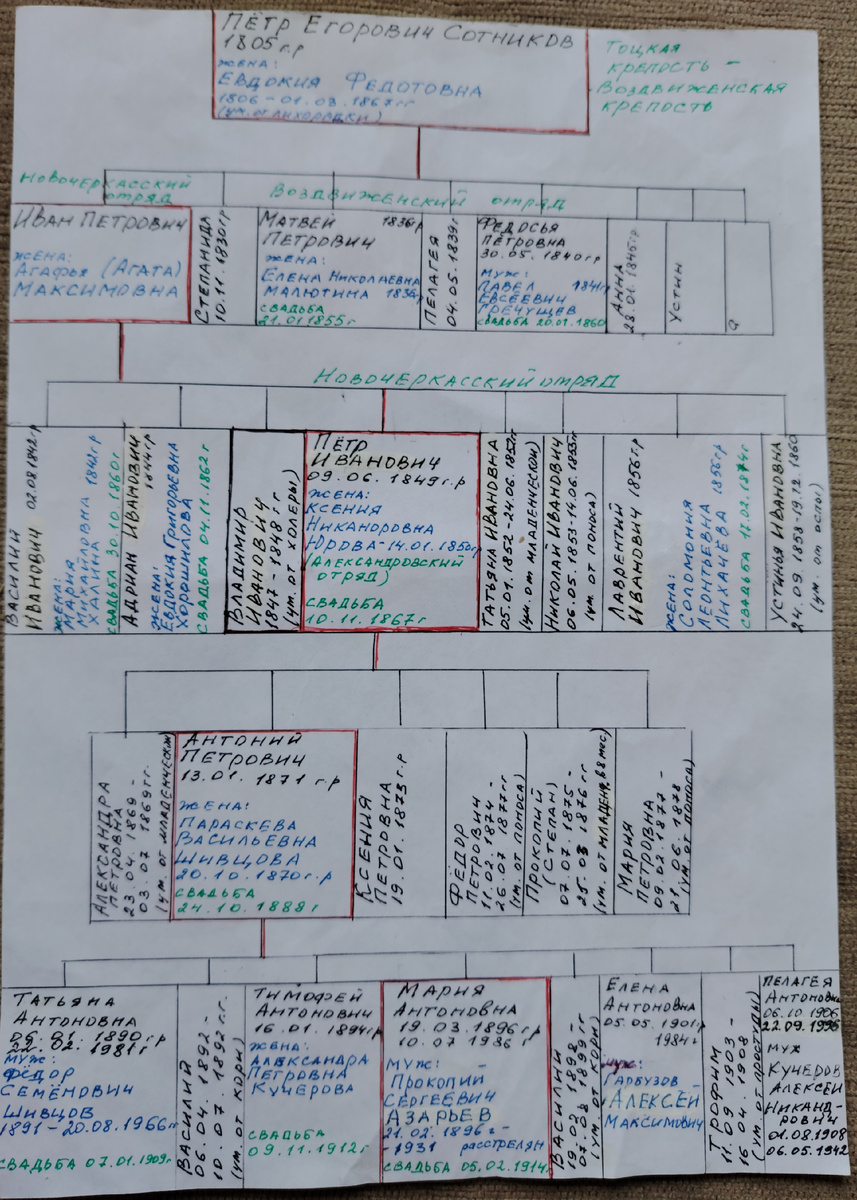 Пётр Егорович Сотников
1805 г.р
жена:
Евдокия Федотовна
1806 - 01.03.1867 гг
(ум. от лихорадки)
Тоцкая
крепость -
Воздвиженская
крепость
Новочеркасский
отряд
Воздвиженский отряд
Иван Петрович
жена:
Агафья (Агата)
Максимовна
Степанида
10.11.1830 г.р
Матвей 1836 г.р
Петрович
жена:
Елена Николаевна
Малютина 1836
свадьба
21.01 1855 г
Пелагея
04.05.1839 г
Федосья
Петровна
30.05.1840 г.р
муж:
Павел 1841 г
Евсеевич
Гречущев
свадьба 20.01.1860
Анна
28.01.1845 г.р
Устин
Новочеркасский отряд
Василий
Иванович 02.08.1842 г.р
жена:
Мария
Михайловна 1842 г.р
Халина
свадьба 30.10.1860 г
Адриан Иванович
1844 г.р
жена:
Евдокия Григорьевна
Хорошилова
свадьба 04.11.1862 г
Владимир
Иванович
1847-1848 гг
(ум. от холеры)
Пётр
Иванович
09.06.1849 г.р
жена:
Ксения
Никаноровна
Юрова - 14.01.1850
(Александровский
отряд)
свадьба
10.11.1867 г
Татьяна Ивановна
05.01.1852-24.06.1852 г
(ум. от младенческой)
Николай Иванович
06.05.1853-14.06.1855 г
(ум. от поноса)
Лаврентий
Иванович 1856 г.р
жена:
Соломония
Леонтьевна 1856 г.р
Лихачева
свадьба 17.02.1874 г
Устинья Ивановна
24.09.1858-19.12.1860
(ум. от оспы)
Александра
Петровна
23.04.1869 -
03.07.1869 гг.
(ум. от младенческой)
Антоний
Петрович
13.01.1871 г.р
жена:
Параскева
Васильевна
Шивцова
20.10.1870 г.р
свадьба
24.10.1888 г
Ксения
Петровна
19.01.1873 г.р
Фёдор
Петрович
11.02.1874 -
26.07.1877 гг
(ум. от поноса)
Прокопий
(Степан)
07.07.1875 -
25.03 1876 гг
(ум. от младен, 8 мес)
Мария
Петровна
09.02.1877 -
21.06.1878
(ум. от поноса)
Татьяна
Антоновна
1890 г.р
02.1981 г
муж:
Фёдор
Семёнович
Шивцов
1891 - 20.08.1966 г
свадьба 07.01.1909 г
Василий
06.04.1892 -
10.07.1892 гг.
(ум. от кори)
Тимофей
Антонович
16.01.1894 г.р
жена:
Александра
Петровна
Кучерова
свадьба
09.11.1912 г
Мария
Антоновна
19.03.1896 г.р
10.07 1986 г
муж:
Прокопий
Сергеевич
Азарьев
21.02.1896 г -
-1931 расстрелян
свадьба 05.02.1914
Василий
19.02.1898 -
07.08.1899 гг
(ум. от кори)
Елена
Антоновна
05.05.1901 г.р
1984 г
муж:
Гарбузов
Алексей
Максимович
Трофим
11.09.1903 -
16.04.1908
(ум. от простуды)
Пелагея
Антоновна
06.10.1906
22.09.1996
муж
Кучеров
Алексей
Никанд-
рович
01.08.1908
06.05.1942